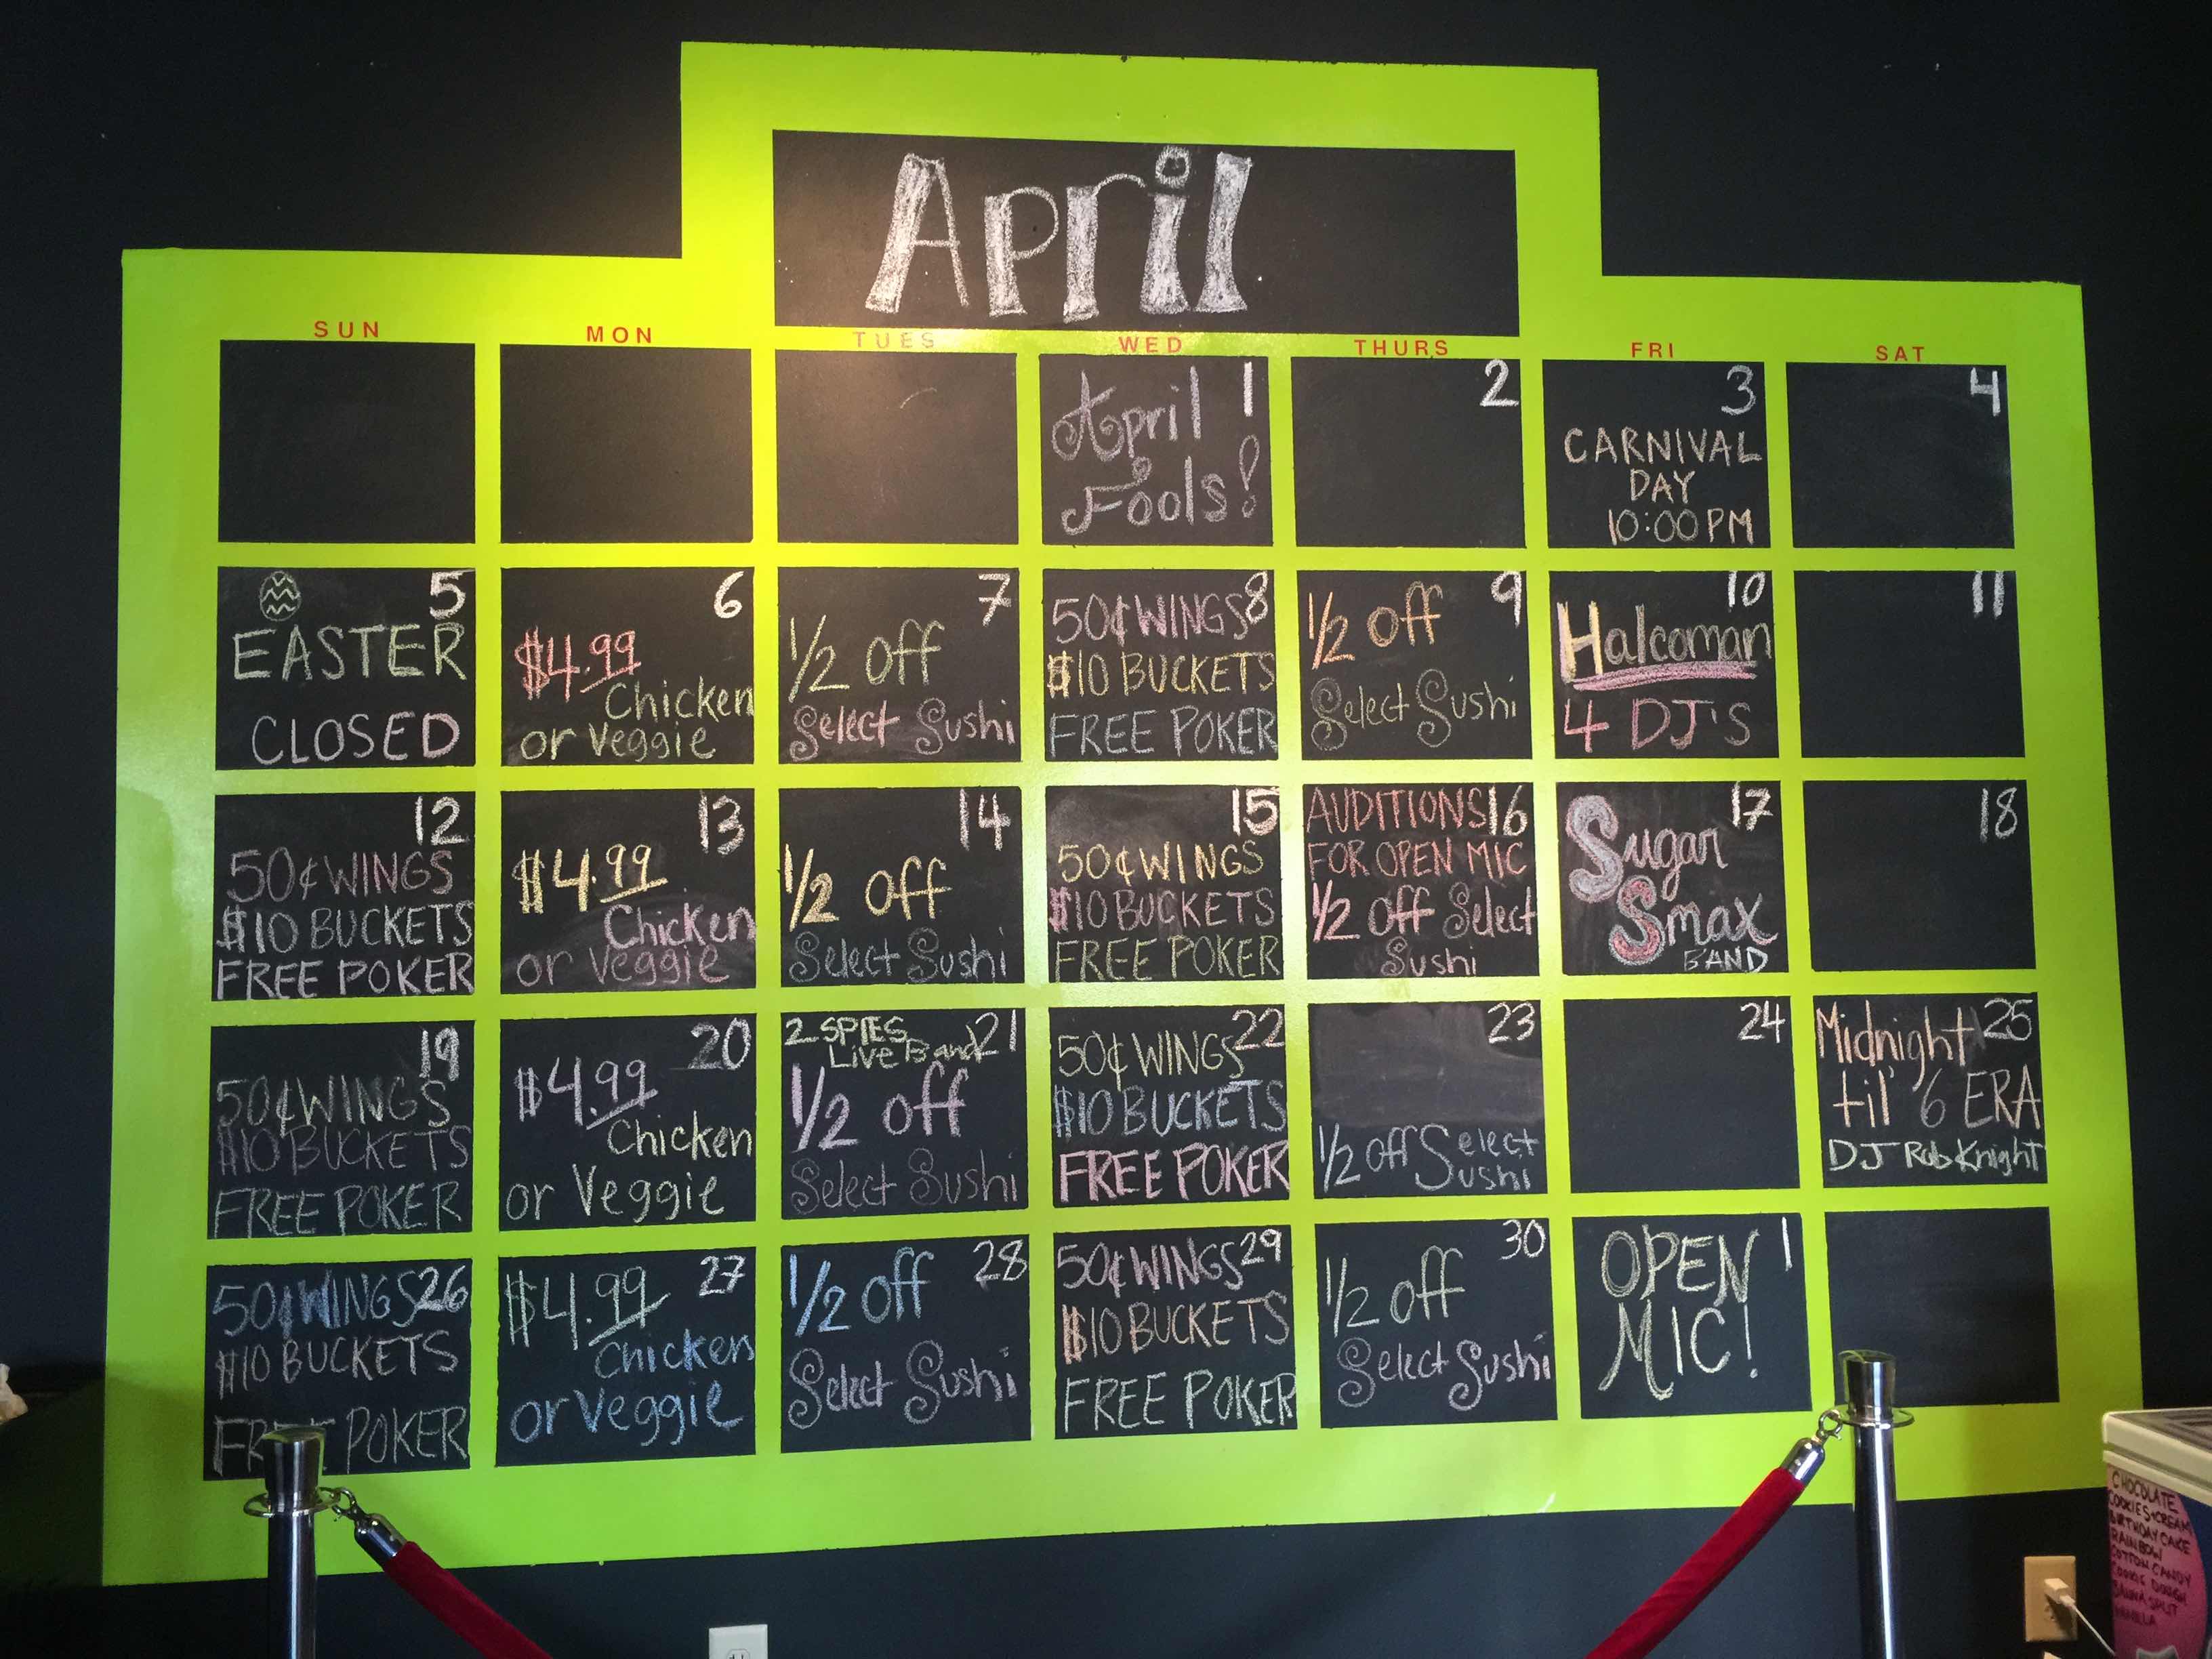 April
SUN MON TUES WED THURS FRI SAT
1
April
Fools!
2
3
CARNIVAL
DAY
10:00 PM
4
5
EASTER
CLOSED
6
$4.99
Chicken
or Veggie
7
1/2 off
Select Sushi
50¢ WINGS 8
$10 BUCKETS
FREE POKER
9
1/2 off
Select Sushi
10
Halcoman
4 DJ'S
11
12
50¢ WINGS
$10 BUCKETS
FREE POKER
13
$4.99
Chicken
or Veggie
14
1/2 off
Select Sushi
15
50¢ WINGS
$10 BUCKETS
FREE POKER
AUDITIONS 16
FOR OPEN MIC
1/2 off Select
Sushi
17
Sugar
Smax
BAND
18
19
50¢ WINGS
$10 BUCKETS
FREE POKER
20
$4.99
Chicken
or Veggie
2 SPIES
Live Band 21
1/2 off
Select Sushi
22
50¢ WINGS
$10 BUCKETS
FREE POKER
23
1/2 off Select
Sushi
24
Midnight 25
til' 6 ERA
DJ Rob Knight
50¢ WINGS 26
$10 BUCKETS
FREE POKER
27
$4.99
Chicken
or Veggie
28
1/2 off
Select Sushi
50¢ WINGS 29
$10 BUCKETS
FREE POKER
30
1/2 off
Select Sushi
OPEN 1
MIC!
CHOCOLATE
COOKIES+CREAM
BIRTHDAY CAKE
RAINBOW
COTTON CANDY
COOKIE DOUGH
BANANA SPLIT
VANILLA